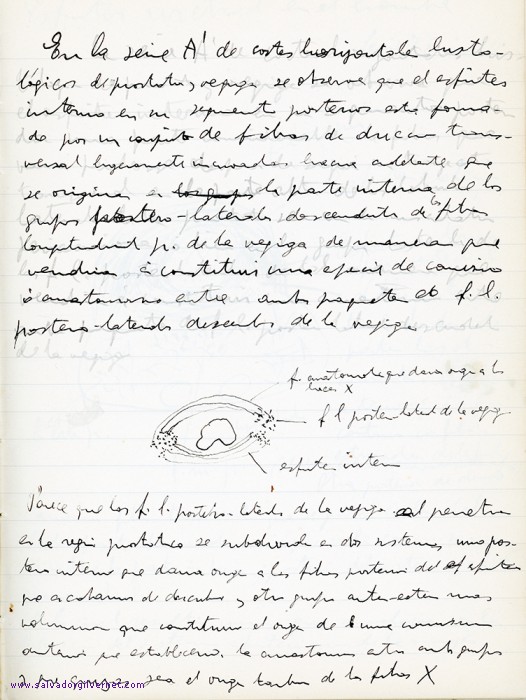 En la serie A' de cortes horizontale histo-
lógicos de prostata y vejiga se observa que el esfinter
interno en su segmento posterior esta forma-
do por un conjunto de fibras de dirección trans-
versal ligeramente incurvada hacia adelante que
se origina en la parte interna de los
grupos postero-laterales descendente de las fibras
longitudinal de la vejiga de manera que
vendria a constituir una especie de comisura
o anastomosis entre ambos paquetes de f. l.
postero-laterales descendentes de la vejiga
f. anastomotica que daria origen a las
fibras X
f l postero lateral de la vejiga
esfinter interno
Parece que las f. l. postero-laterales de la vejiga al penetrar
en la región prostatica se subdividen en dos sistemas, uno pos-
tero interno que daria origen a las fibras posteriores del esfinter
que acabamos de describir y otro grupo antero-externo mas
voluminoso que constituye el origen de una comisura
anterior que establecería la anastomosis entre ambos grupos
sea el origen tambien de las fibras X
www.salvadorgilvernet.com